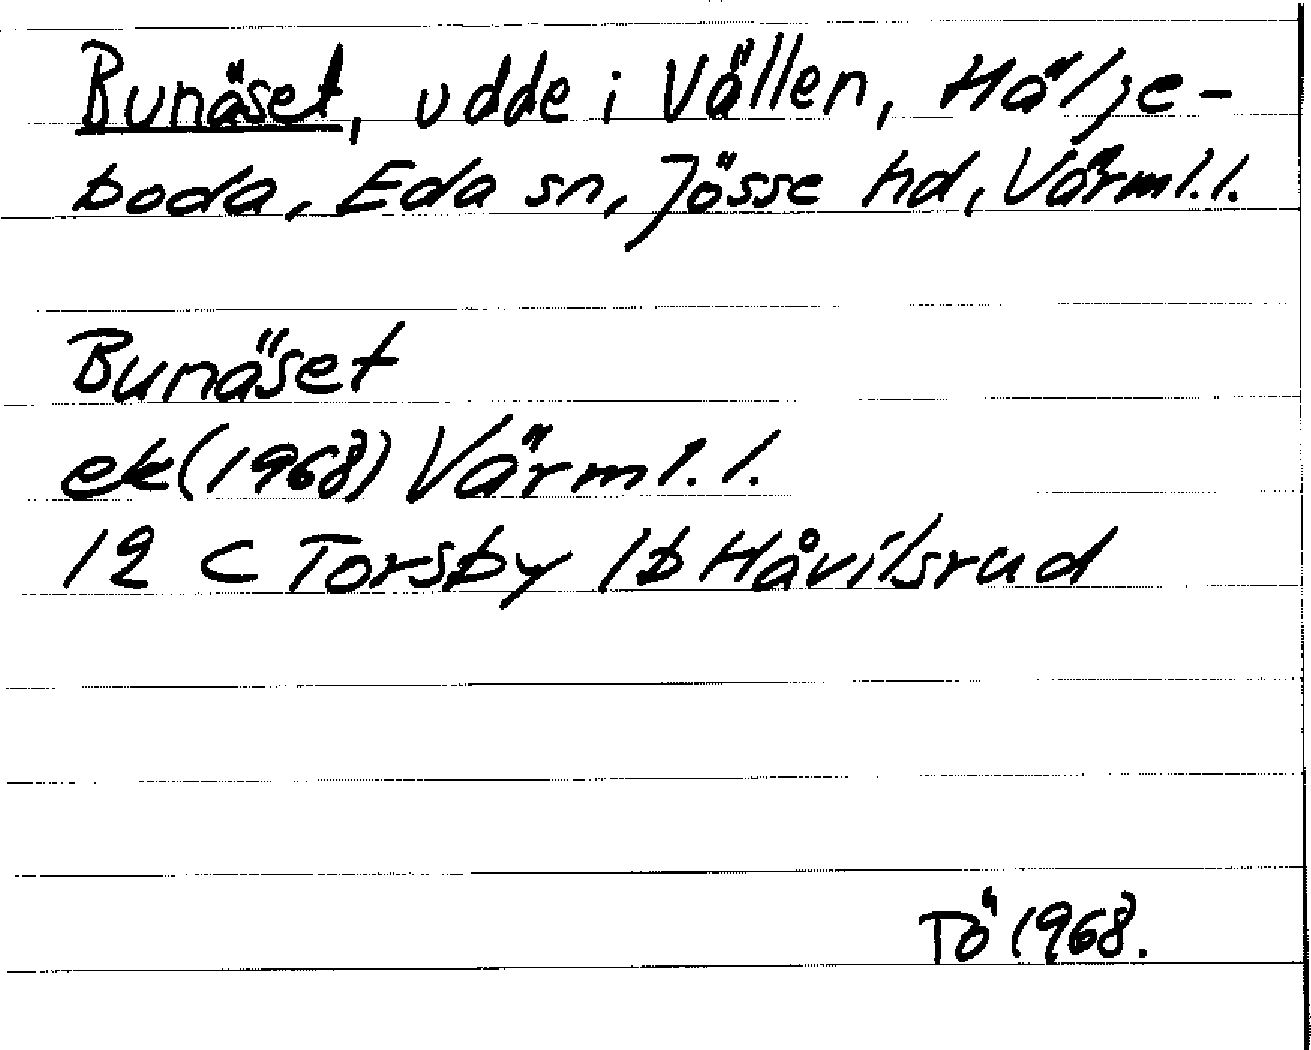 Bunäset, udde i Vällen, Hälje-
boda, Eda sn, Jösse hd, Värml.l.
Bunäset
ek(1968) Värml.l.
12 C Torsby 1b Håvilsrud
Tö 1968.